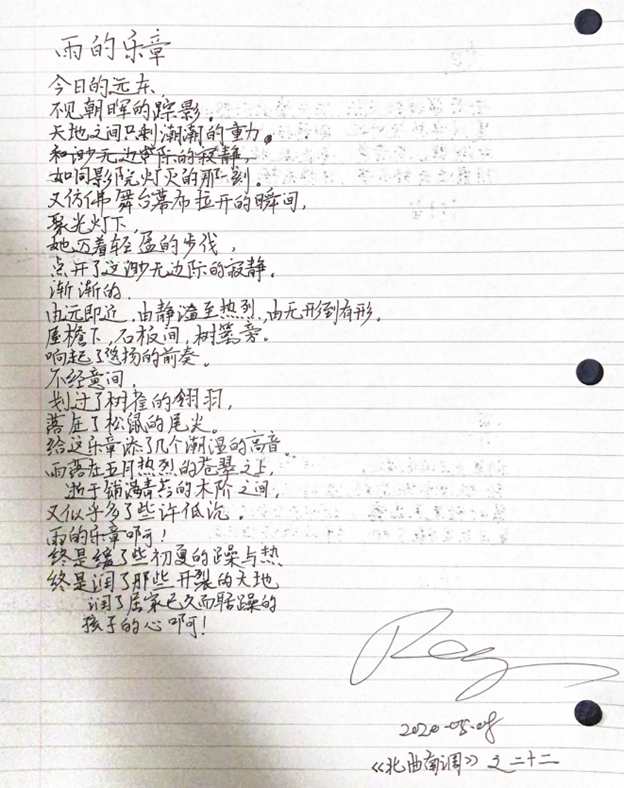 雨的乐章
今日的远东,
不见朝晖的踪影。
天地之间只剩潮潮的重力。
和渺无边际的寂静,
如同影院灯灭的那一刻。
又仿佛舞台幕布拉开的瞬间,
聚光灯下,
她迈着轻盈的步伐,
点开了这渺无边际的寂静。
渐渐的,
由远即近,由静谧至热烈,由无形到有形。
屋檐下,石板间,树篱旁。
响起了悠扬的前奏。
不经意间,
划过了树雀的翎羽,
落在了松鼠的尾尖。
给这乐章添了几个潮湿的高音。
雨落在五月热烈的苍翠之上,
逝于铺满青苔的木阶之间,
又似乎多了些许低沉。
雨的乐章啊!
终是缓了些初夏的躁与热
终是润了那些开裂的大地
润了居家已久而聒躁的
孩子的心啊!
Ray
2020-05-08
《北曲南调》之二十二